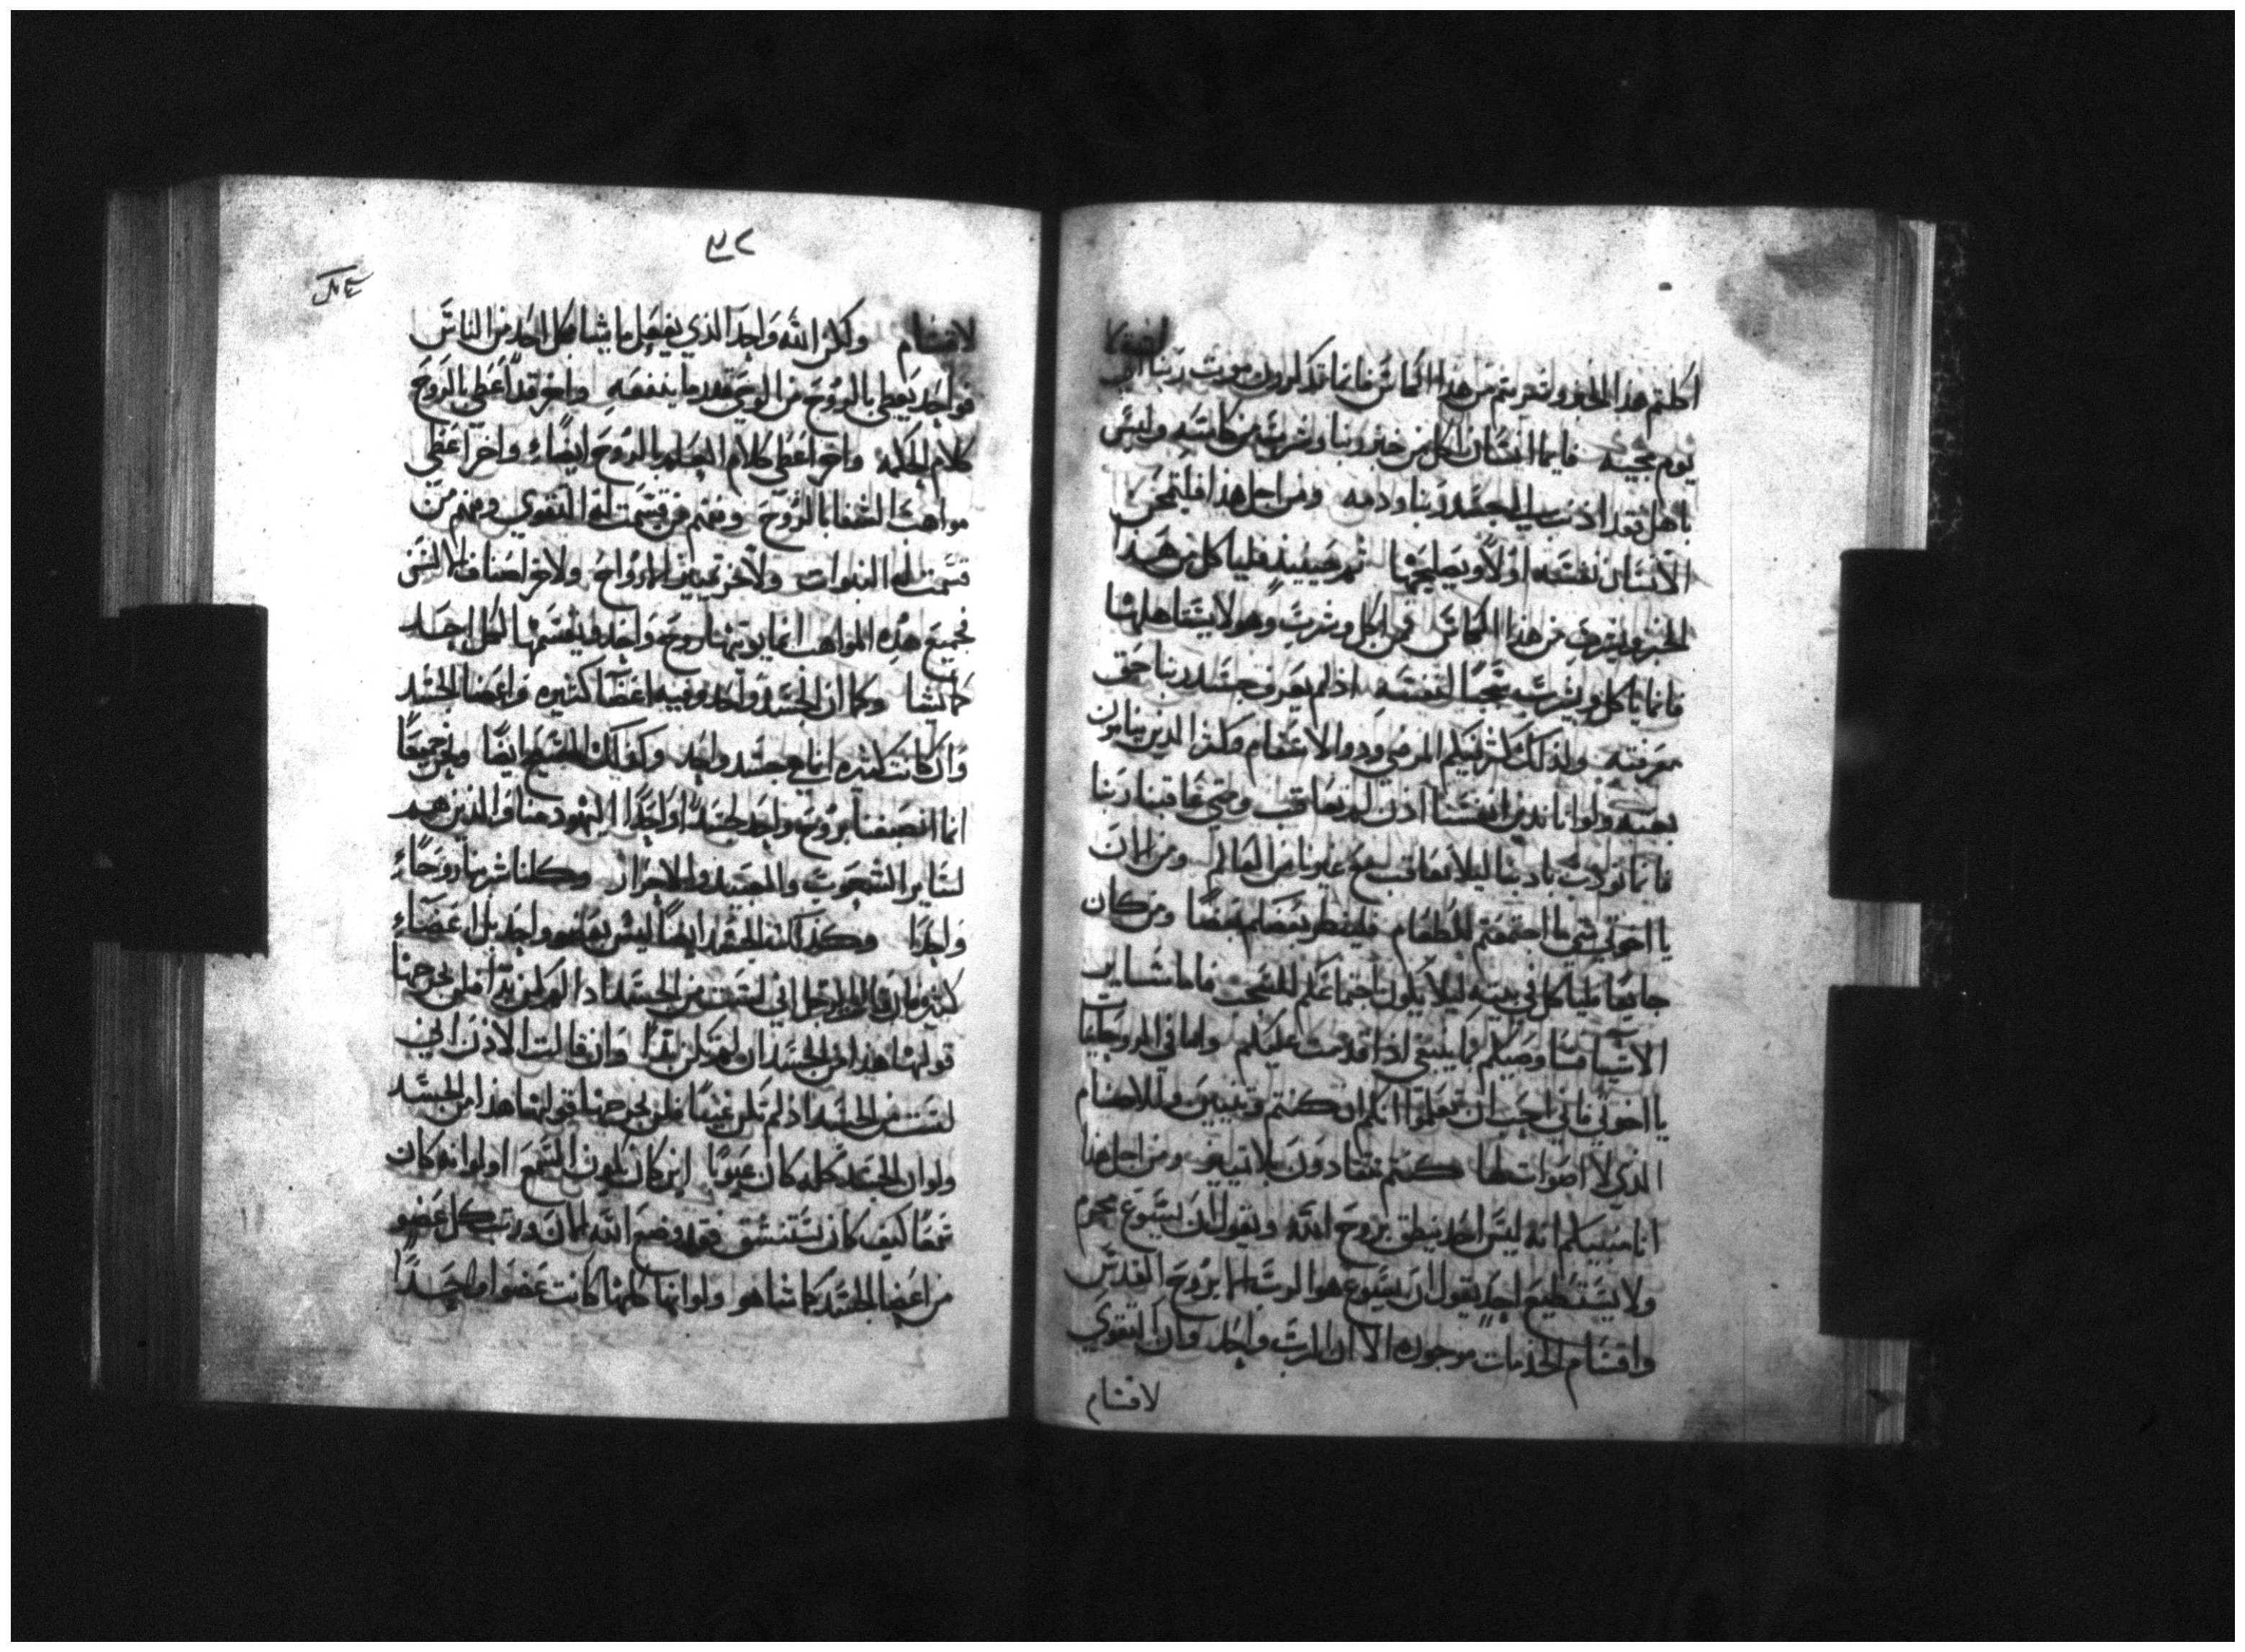 اكلتم هذا الخبز وشربتم من هذا الكاس فانما تذكرون موت ربنا الي
يوم مجيه فايما انسان اكل من خبز ربنا وشرب من كاسه وليس
باهل فقد اذنب الي جسد ربنا ودمه ومن اجل هذا فليمتحن
الانسان نفسه اولا ويصلحها ثم حينيذ فلياكل من هذا
الخبز وليشرب من هذا الكاس فمن اكل وشرب وهو لا يستاهلها
فانما ياكل ويشرب شجبا لنفسه اذ لم يعرف جسد ربنا حق
معرفته ولذلك كثر فيكم المرضي وذووا الاسقام وكثر الذين ينامون
بغته ولو انا ندين انفسنا اذن لم نعاقب ومتي عاقبنا ربنا
فانما نودب تاديبا ليلا نعاقب مع غيرنا من العالم ومن الان
يا اخوتي متي ما اجتمعتم للطعام فلينتظر بعضكم بعضا ومن كان
جايعا فلياكل في بيته ليلا يكون اجتماعكم للشجب فاما ساير
الاشيا فسا وصيكم بما ينبغي اذا قدمت عليكم واما في الروحانيات
يا اخوتي فاني احب ان تعلموا انكم ان كنتم وثنيين وللاصنام
الذي لا اصوات لها كنتم تنقادون بلا تمييز ومن اجل هذا
انا مبينكم انه ليس احد ينطق بروح الله ويقول ان يسوع محرم
ولا يستطيع احد يقول ان يسوع هو الرب الا بروح القدس
واقسام الخدمات موجوده الا ان الرب واحد وان القوي
لاقسام
٣٢
لاقسام ولكن الله واحد الذي يفعل ما يشا فكل احد من الناس
فواحد يعطي بالروح من الوحي بقدر ما ينفعه واخر قد اعطي بالروح
كلام الحكمه واخر اعطي كلام العلم بالروح ايضا واخر اعطي
مواهب الشفا بالروح ومنهم من قسمت له القوي ومنهم من
قسمت له النبوات ولاخر تمييز الارواح ولاخر اصناف الالسن
فجميع هذه المواهب انما يوتيها روح واحد ويقسمها لكل احد
كما يشا وكما ان الجسد واحد وفيه اعضا كثيره واعضا الجسد
وان كانت كثيره انما هي جسد واحد وكذلك المسيح ايضا ونحن جميعا
انما انصبغنا بروح واحد لجسدا واحدا اليهود منا والذين هم
لساير الشعوب والعبيد والاحرار وكلنا شربنا روحا
واحدا وكذلك الجسد ايضا ليس بعضو واحد بل اعضاء
كثيره فان قالت الرجل اني لست من الجسد اذ لم اكن يدا فلن يخرجها
قولها هذا من الجسد ان لم تكن يدا وان قالت الاذن اني
لست من الجسد اذ لم تكن عينا فلن يخرجها قولها هذا من الجسد
ولو ان الجسد كله كان عيونا اين كان يكون السمع او لو انه كان
سمعا كيف كان يستنشق فقد وضع الله الان ورتب كل عضو
من اعضا الجسد كما شا هو ولو انها كلها كانت عضوا واحدا